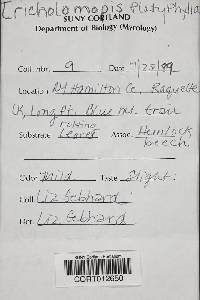 Tricholomopis Platyphylla
SUNY CORTLAND
Department of Biology (Mycology)
Coll. Nr. 9 7/25/99
Location NY Hamilton Co, Raquette
LK, Long Pt. Blue mt. trail
rotting
Substrate Leaves Assoc. Hemlock
beech
Odor Mild Taste Slight
Coll Liz Gebhard
Det. Liz Gebhard
CORT012650